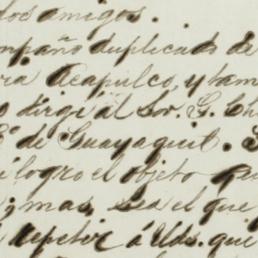 dos amigos.
mpaño duplicado de
ra Acapulco, y tam
o dirgi al Sor. G. Ch
Co de Guayaquil. S
logro el objeto que
; mas, sea el que
repetir á Uds. que